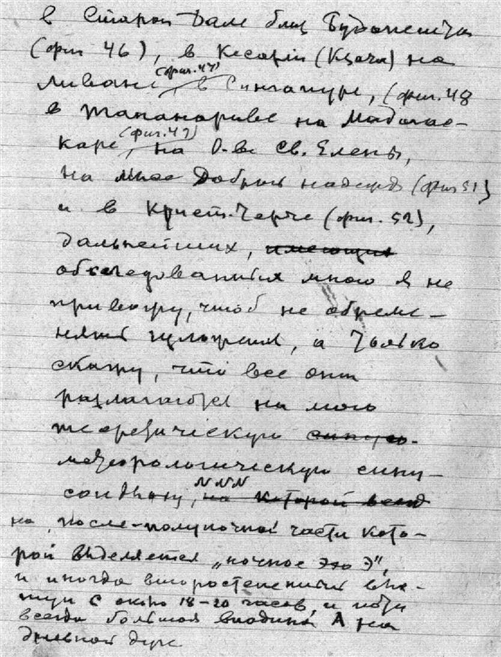 в Старой Дале близ Будапешта
(фиг 46), в Кесарии (Ксара) на
Ливане (фиг. 47) в Сингапуре, (фиг. 48
в Тананариве на Мадагас-
каре (фиг. 49), на О-ве Св. Елены,
на Мысе Доброй надежды (фиг 51)
и в Крист-Черче (фиг. 52),
дальнейших, имеющих
обследованных мною я не
привожу, чтоб не обреме-
нять изложения, а только
скажу, что все они
разлагаются на мою
теоретическую синусо-
метеорологическую сину-
соидиану, NNN на которой всегд
на после-полуночной части кото-
рой выделяется „ночное эхо Э",
и иногда
с около 18-20 часов, и
всегда большая впадина А на
дневной дуге